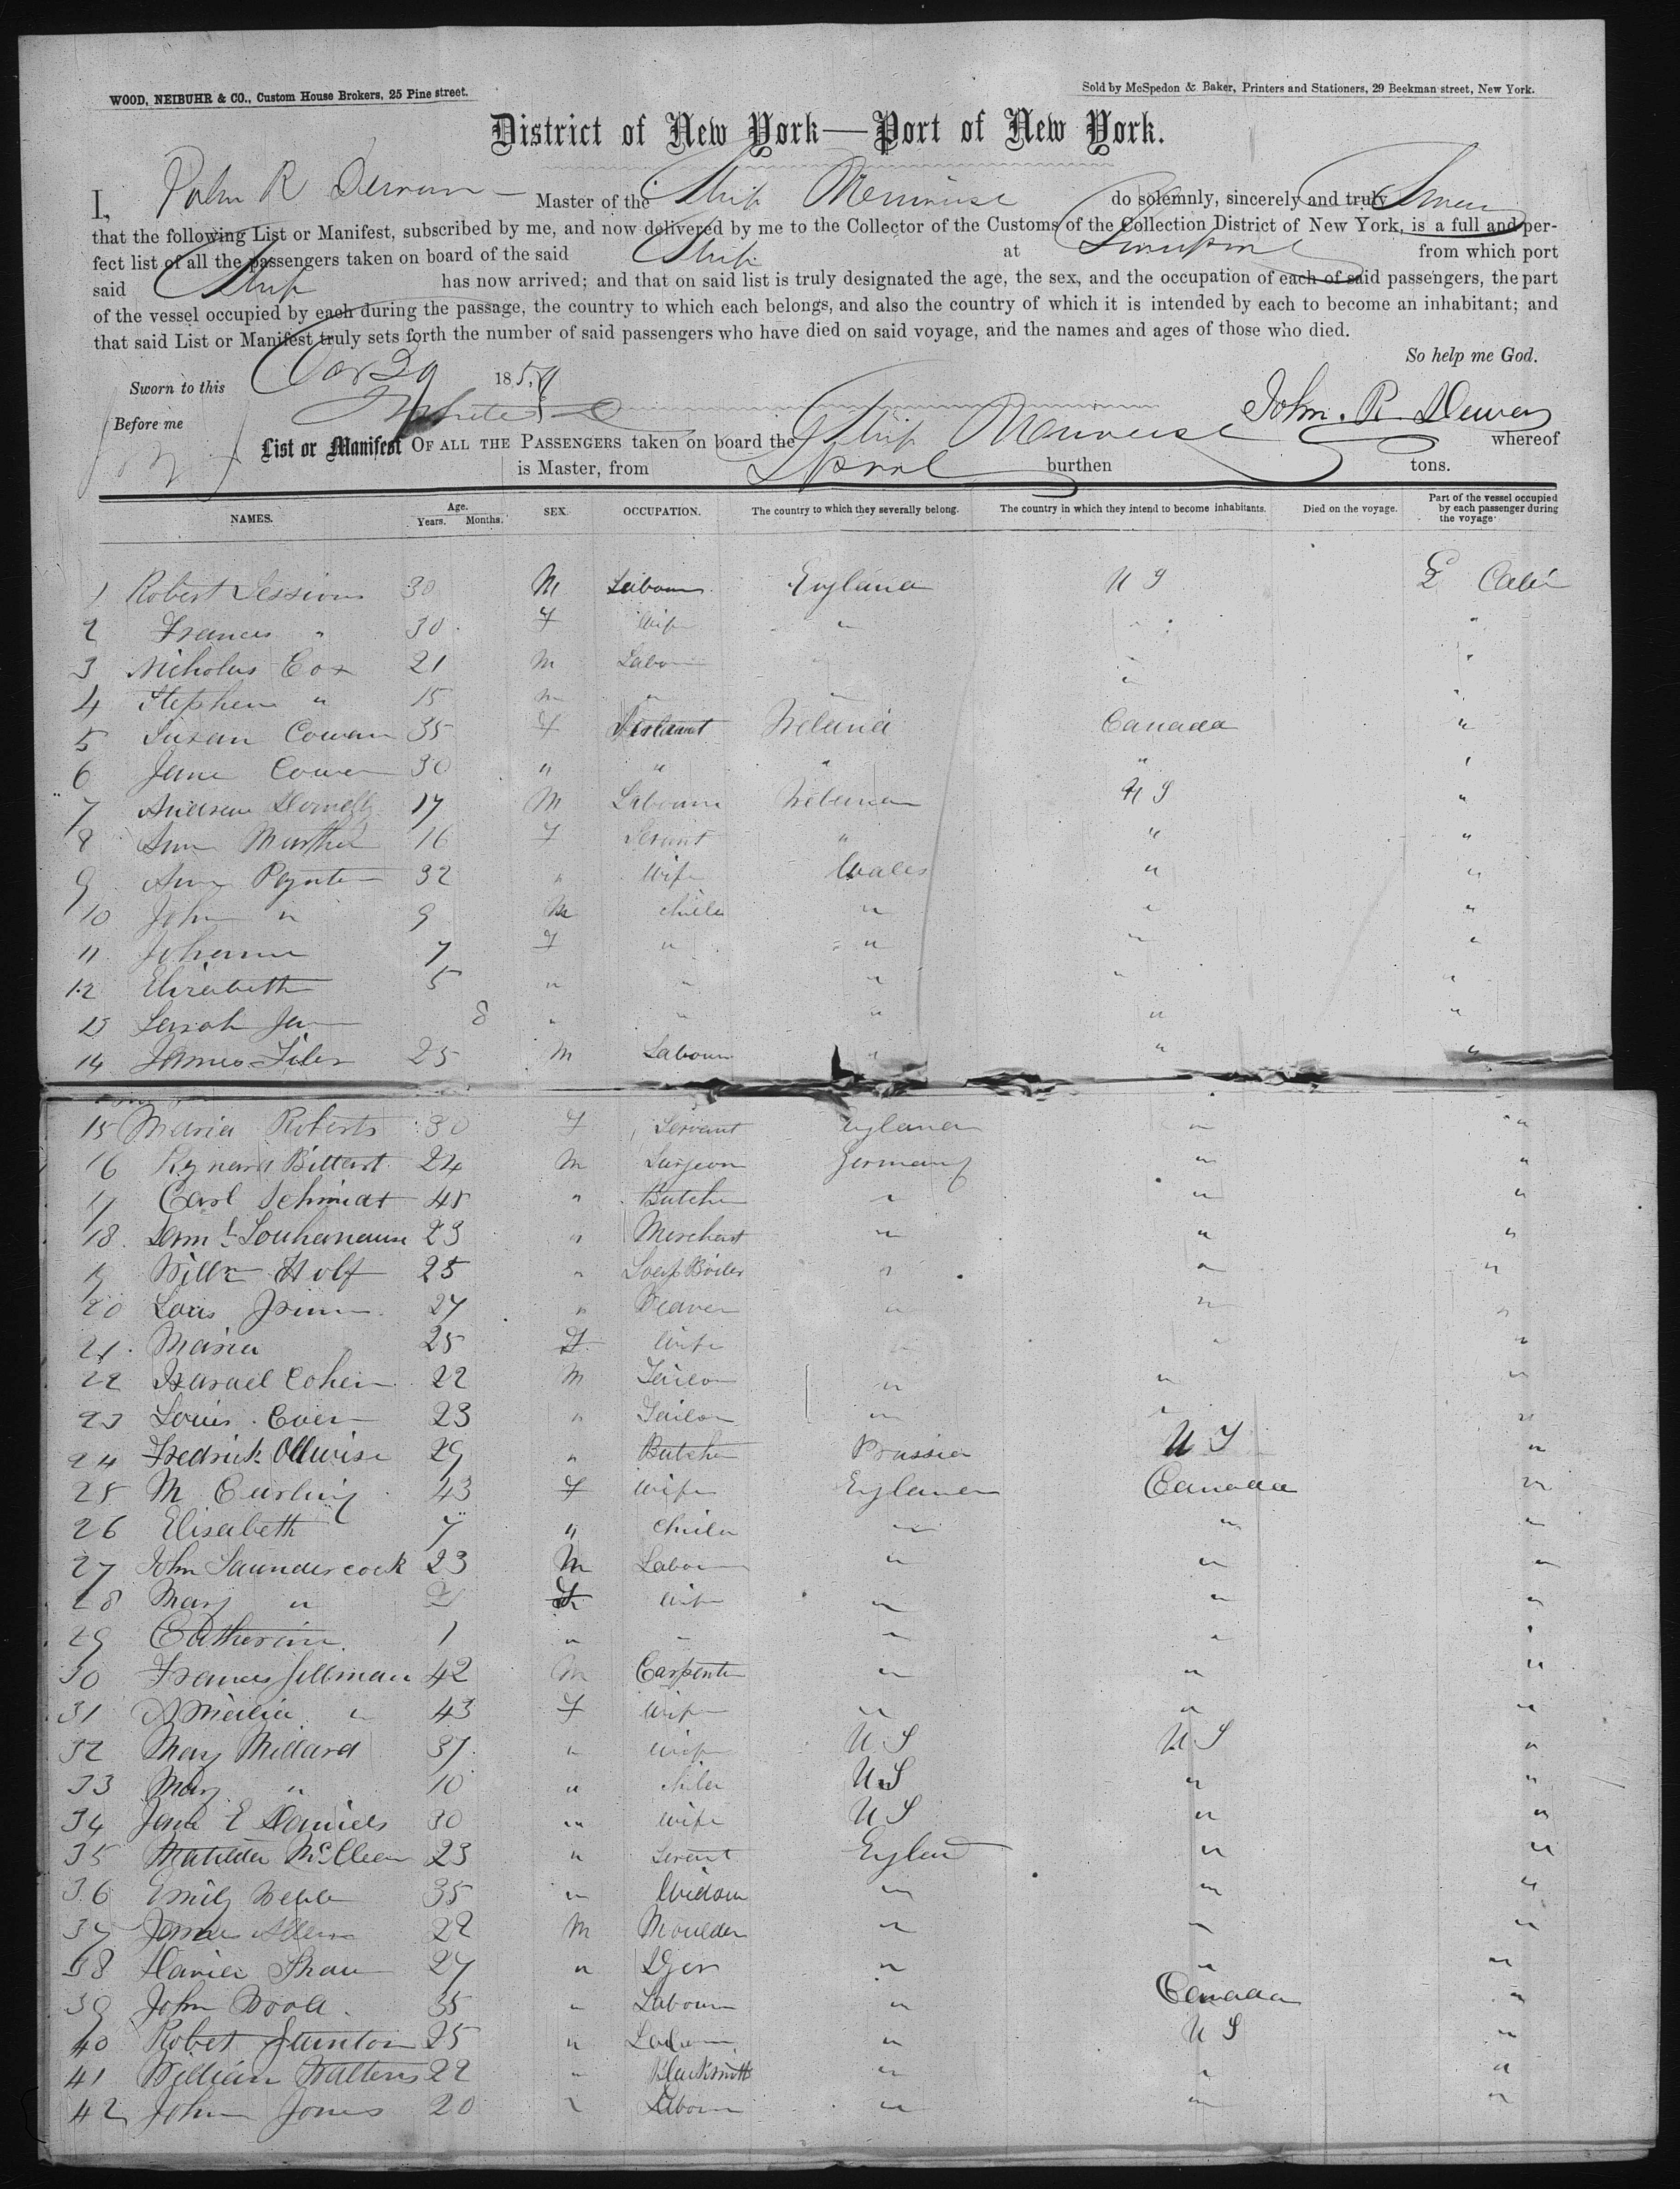 WOOD, NEIBUHR & CO., Custom House Brokers, 25 Pine street.
Sold by McSpedon & Baker, Printers and Stationers, 29 Beekman street, New York.
District of New York—Port of New York.
I, John R Master of the Ship do solemnly, sincerely and truly Swear
that the following List or Manifest, subscribed by me, and now delivered by me to the Collector of the Customs of the Collection District of New York, is a full and per-
fect list of all the passengers taken on board of the said Ship at Liverpool from which port
said Ship has now arrived; and that on said list is truly designated the age, the sex, and the occupation of each of said passengers, the part
of the vessel occupied by each during the passage, the country to which each belongs, and also the country of which it is intended by each to become an inhabitant; and
that said List or Manifest truly sets forth the number of said passengers who have died on said voyage, and the names and ages of those who died.
So help me God.
Sworn to this 185
Before me John. R
List or Manifest OF ALL THE PASSENGERS taken on board the Ship whereof
is Master, from Lpool burthen tons.
NAMES. Age. Years. Months. SEX. OCCUPATION. The country to which they severally belong. The country in which they intend to become inhabitants. Died on the voyage. Part of the vessel occupied by each passenger during the voyage
1 Robert Sessions 30 M Labour England U S
2 Frances " 30 F Wife " " "
3 Nicholas Cox 21 M Labour " " "
4 Stephen " 15 M " " " "
5 Susan Cowan 35 F Ireland Canada "
6 Jane Cowen 30 " " " " "
7 Andrew Donnelly 17 M Labourer Ireland U S "
8 Ann 16 F Servant " " "
9 Ann Poynter 32 " Wife Wales " "
10 John " 9 M Child " " "
11 Johanna 7 F " " " "
12 Elizabeth 5 " " " " "
13 Sarah Jan 8 " " " " "
14 James 25 M Labour " " "
15 Maria Roberts 30 F Servant England " "
16 24 M Surgeon Germany " "
17 Carl Schmidt 45 " Butcher " " "
18 23 " Merchant " " "
19 Willm Holf 25 " Soap Boiler " " "
20 Louis 27 " Weaver " " "
21 Maria 25 F Wife " " "
22 Isarael Cohen 22 M Tailor " " "
23 Louis 23 " Tailor " " "
24 Fredrick 29 " Butcher Prussia U S "
25 M Curling 43 F Wife England Canada "
26 Elisabeth 7 " Child " " "
27 John Saundercock 23 M Labour " " "
28 Mary " F Wife " " "
29 Catherine 1 " " " " "
30 Frances 42 M Carpenter " " "
31 Amelia " 43 F Wife " " "
32 Mary Millard 37 " Wife U S U S "
33 Mary " 10 " Child U S " "
34 Jane E Daniels 30 " Wife U S " "
35 Matilda McClean 23 " Servant England " "
36 Emily Webb 35 " Widow " " "
37 James 22 M Moulder " " "
38 Daniel Shaw 27 " Dyer " " "
39 John Wood 35 " Labour " Canada "
40 Robet Stunton 25 " Labour " U S "
41 William Walters 22 " Blacksmith " " "
42 John Jones 20 " Labour " " "